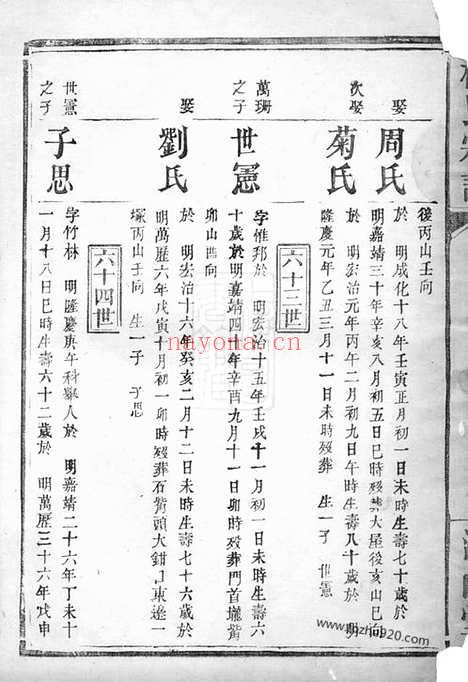 後丙山壬向
娶
周氏
於 明成化十八年壬寅正月初一日未時生壽七十歲於
明嘉靖三十年辛亥八月初五日巳時歿葬大屋後亥山巳向
次娶
菊氏
於 明宏治元年丙午二月初九日午時生壽八十歲於 明
隆慶元年乙丑三月十一日未時歿葬 生一子 世憲
六十三世
萬珊
之子
世憲
字惟邦於 明宏治十五年壬戌十一月初一日未時生壽六
十歲於明嘉靖四十年辛酉九月十一日卯時歿葬門首壠
卯山酉向
娶
劉氏
於 明宏治十六年癸亥二月十二日未時生壽七十六歲於
明萬歷六年戊寅十月初一卯時歿葬石觜頭大鉗口東邊一
塚丙山壬向 生一子 子思
六十四世
世憲
之子
子思
字竹林 明隆慶庚午科舉人於 明嘉靖二十六年丁未十
一月十八日巳時生壽六十二歲於 明萬歷三十六年戊申
nayona.cn
www.jiazhu920.com